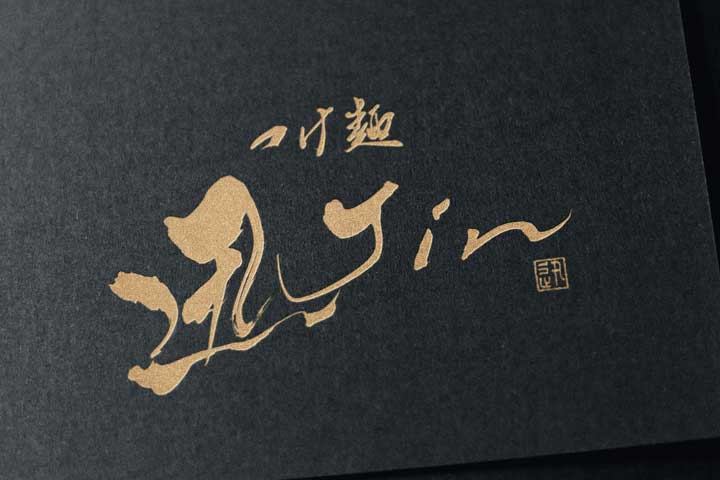 つけ麺
迅 Jin
迅